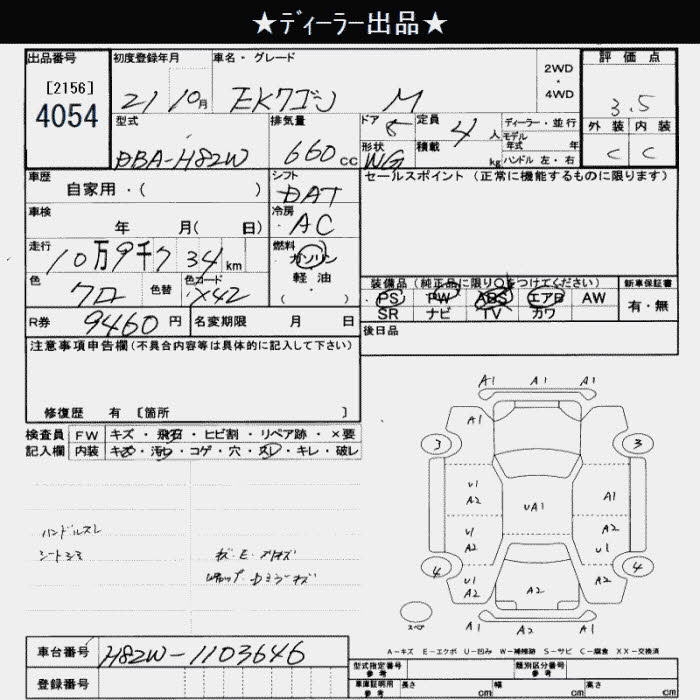 ★ディーラー出品★
出品番号
[2156]
4054
初度登録年月
21 10月
車名・グレード
EKワゴン M
2WD
・
4WD
評価点
3.5
外装 内装
C C
型式
DBA-H82W
排気量
660 cc
ドア
5
形状
WG
定員
4 人
積載
kg
ディーラー・並行
モデル
年式 年
ハンドル 左・右
車歴
自家用・( )
シフト
DAT
セールスポイント (正常に機能するものに限ります)
車検
年 月( 日)
冷房
AC
走行
10万9千7 34 km
燃料
ガソリン
軽油
( )
色
クロ
色替
色コード
X42
装備品 (純正品に限り○をつけてください)
PS PW ABS エアB AW
SR ナビ TV カワ
新車保証書
有・無
R券
9460 円
名変期限 月 日
後日品
注意事項申告欄(不具合内容等は具体的に記入して下さい)
修復歴 有 〔箇所 〕
検査員
記入欄
FW キズ・飛石・ヒビ割・リペア跡・×要
内装 キズ・汚れ・コゲ・穴・スレ・キレ・破レ
ハンドルスレ
A1 A1 A1
A1
3 3
U1
A2
UA1
A1
U1
A2
A2
U1
4 4
U1
A2
A2
A2
スペア
A1 A2 A1
A-キズ E-エクボ U-凹み W-補修跡 S-サビ C-腐食 XX-交換済
車台番号
H82W-1103646
登録番号
型式指定番号
参考
類別区分番号
参考
車庫証明用
参考
長さ cm 幅 cm 高さ cm